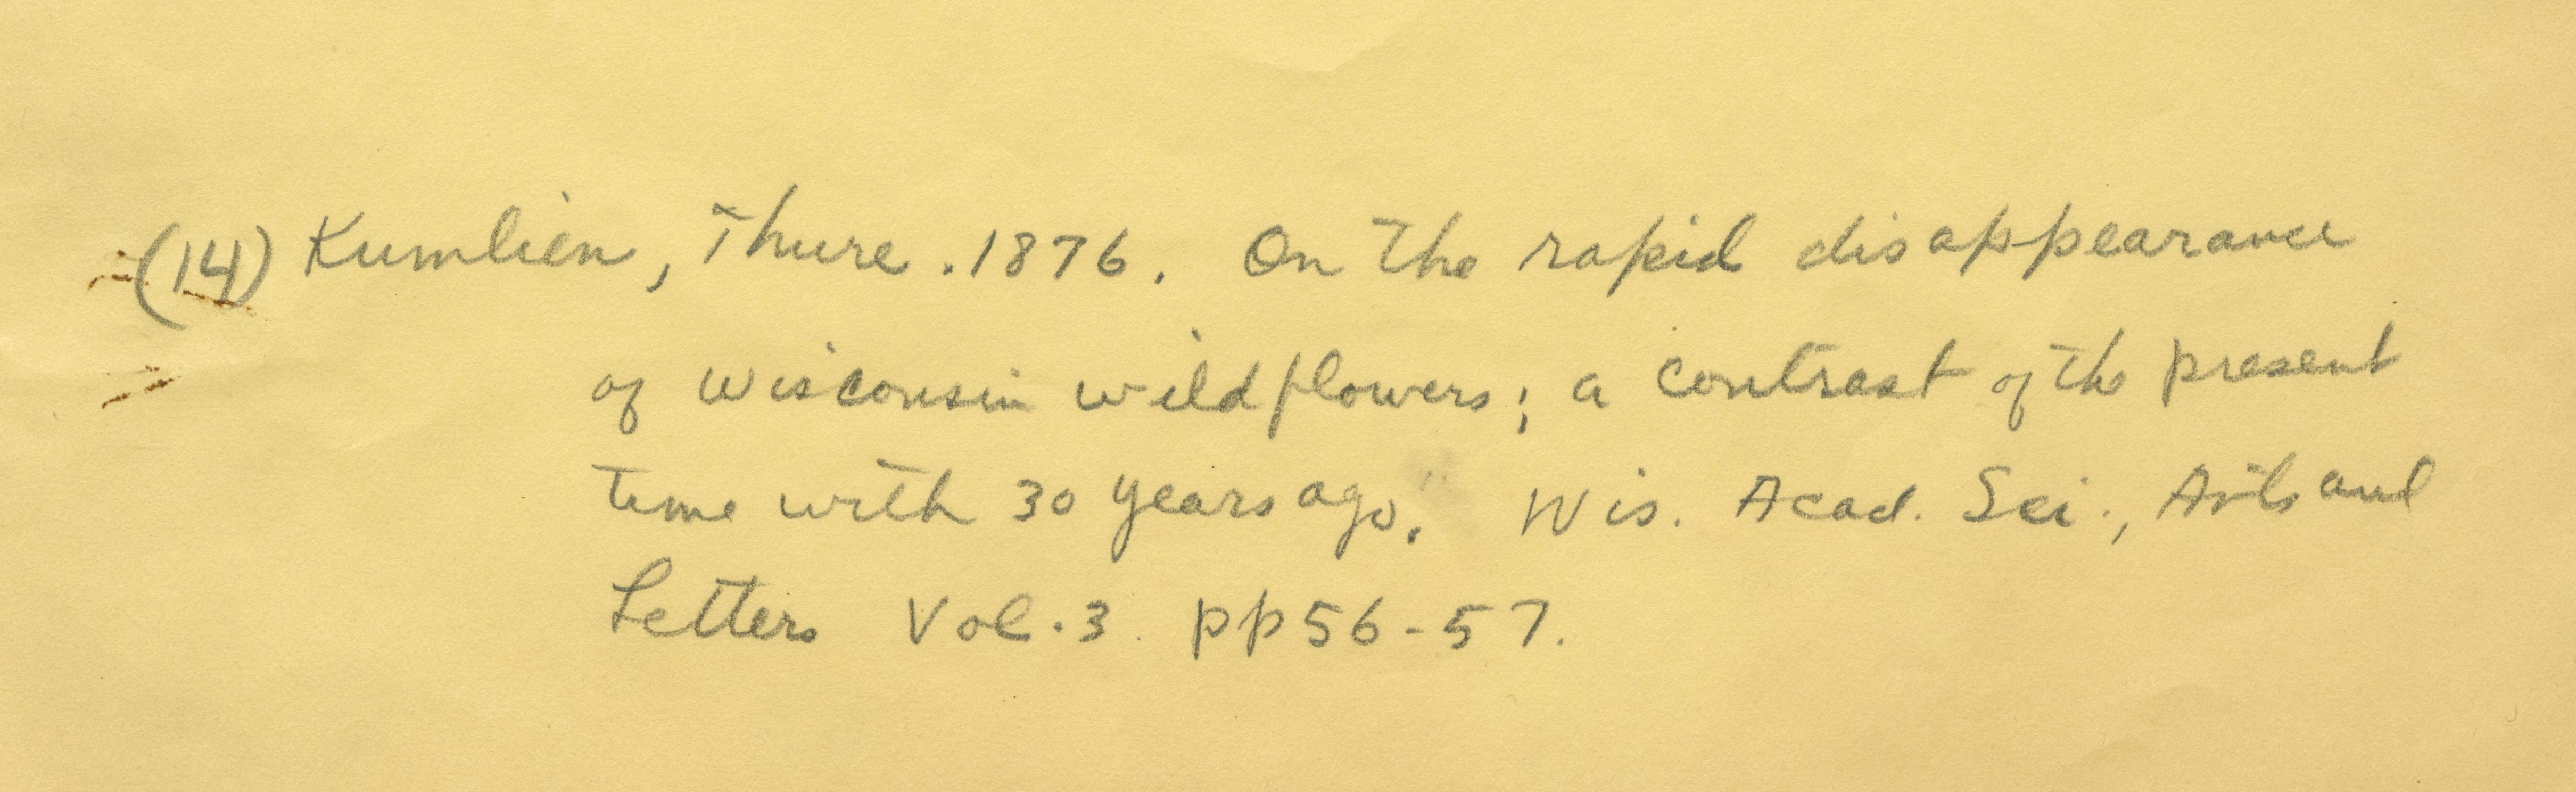 (14) Kumlien, Thure. 1876. On the rapid disappearance
of Wisconsin wildflowers; a contrast of the present
time with 30 years ago." Wis. Acad. Sci., Arts and
Letters Vol. 3. pp 56-57.